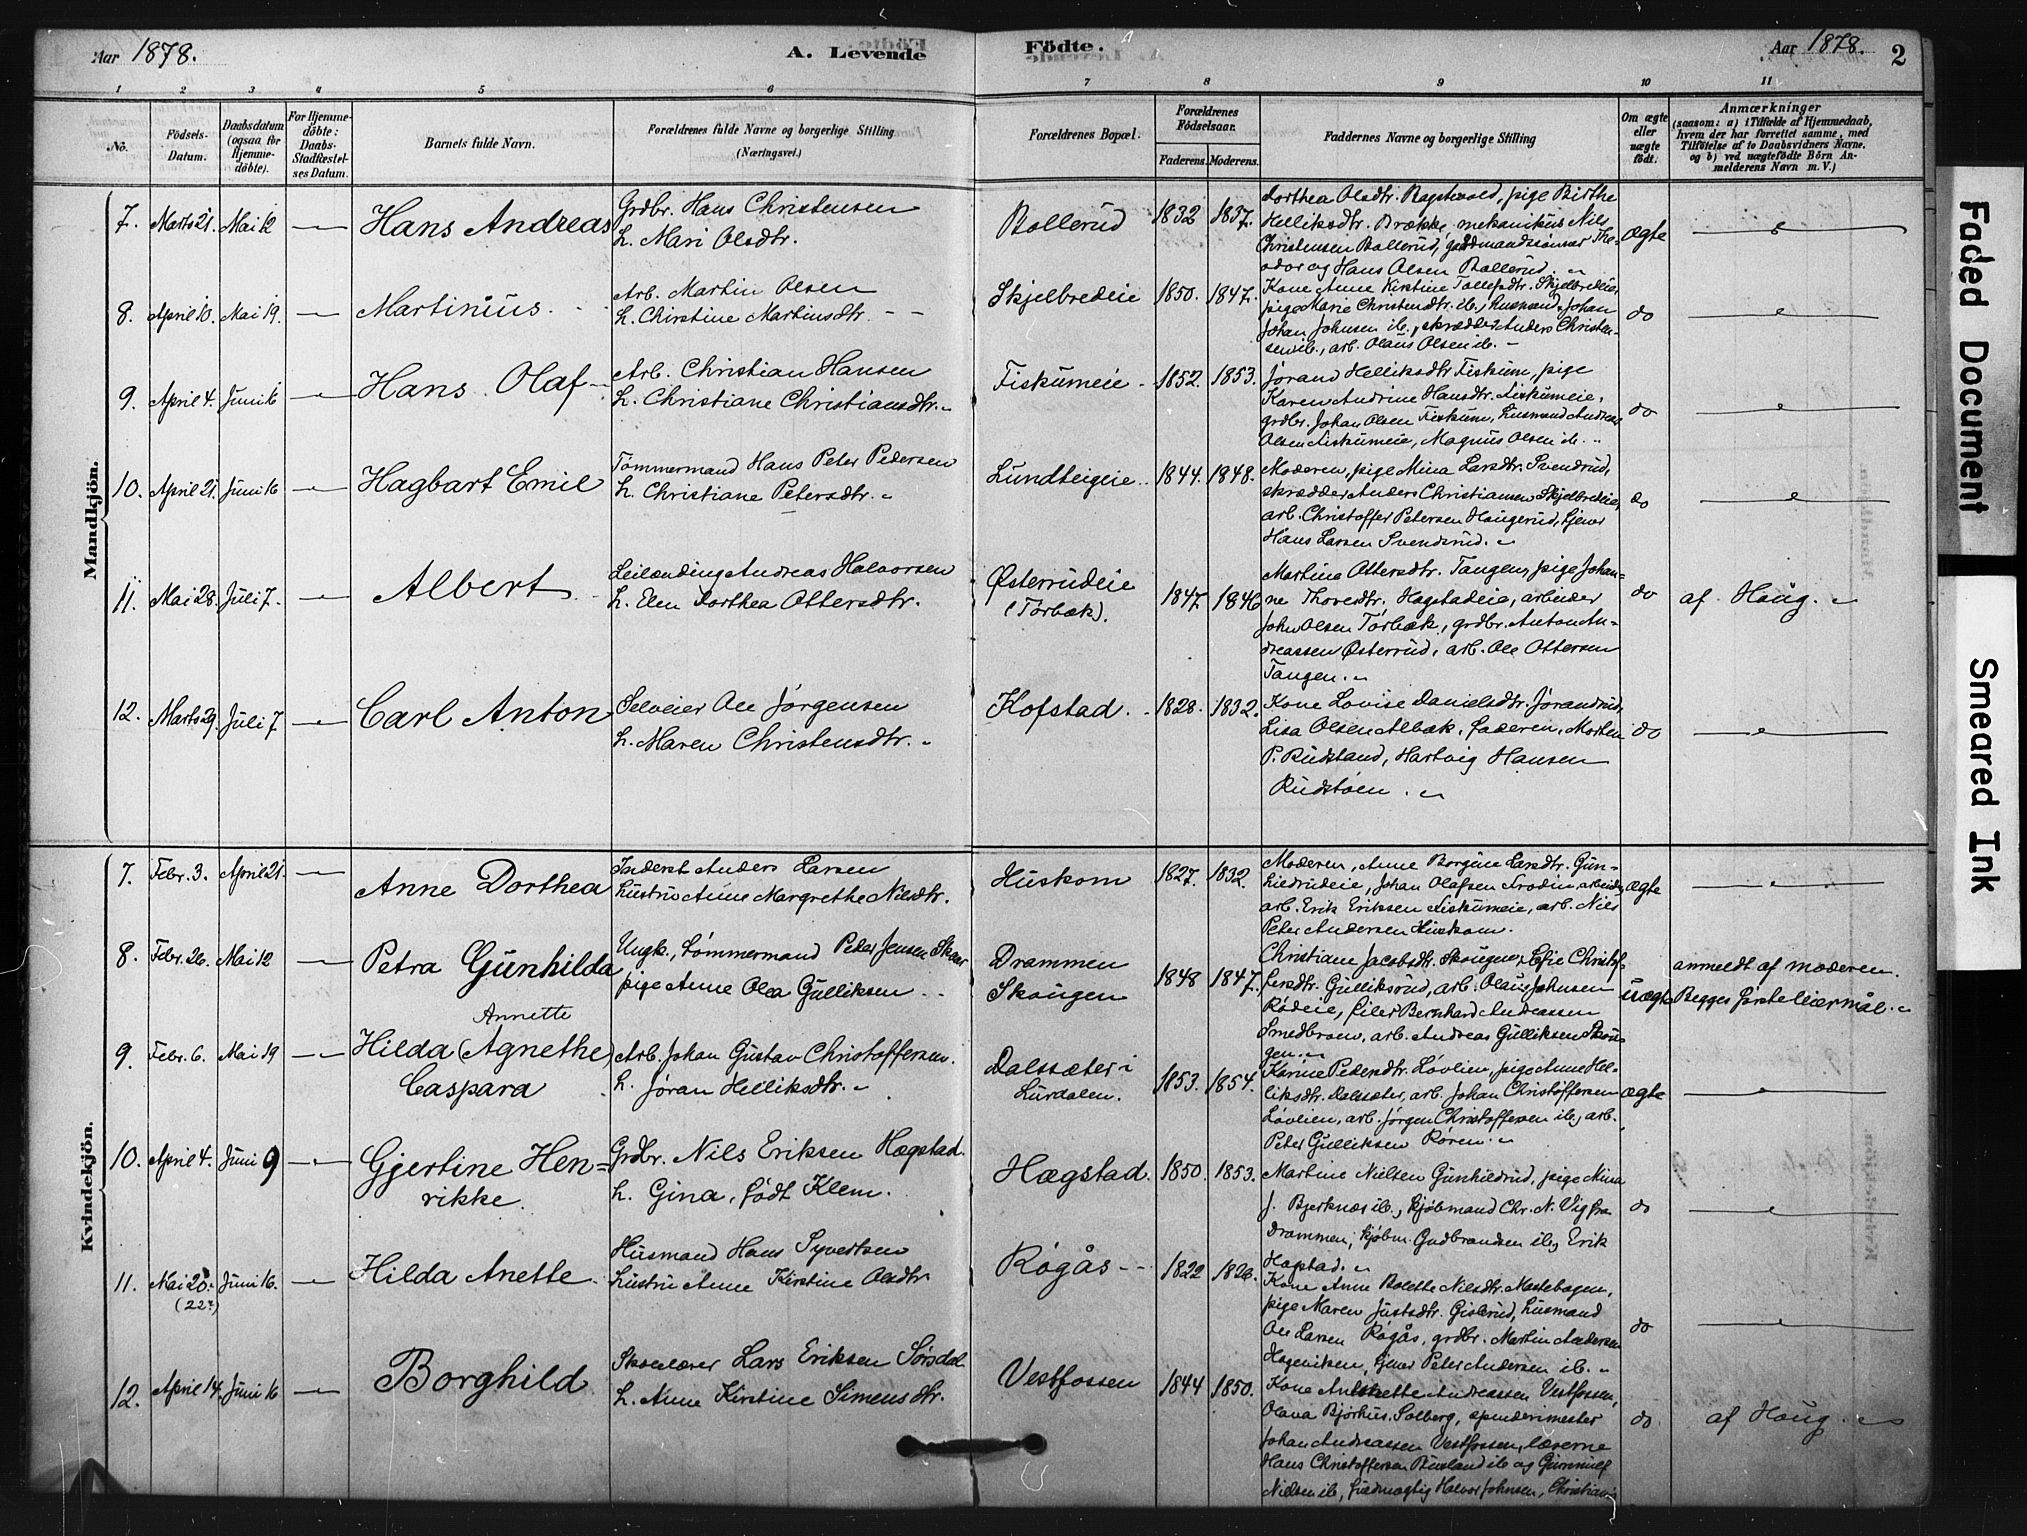 Aar 1878.
A. Levende
Födte.
Aar 1878.
2
1 2 3 4 5 6 7 8 9 10 11
No.
Födsels-Datum.
Daabsdatum (ogsaa for Hjemme-døbte).
For Hjemme-døbte: Daabs-Stadfæstel-ses Datum.
Barnets fulde Navn.
Forældrenes fulde Navne og borgerlige Stilling
(Næringsvei.)
Forældrenes Bopæl.
Forældrenes Fødselsaar.
Faderens. Moderens.
Faddernes Navne og borgerlige Stilling
Om ægte eller uægte født.
Anmærkninger
(saasom: a) i Tilfælde af Hjemmedaab,
hvem der har forrettet samme, med
Tilføielse af to Daabsvidners Navne,
og b) ved uægtefødte Børn An-
melderens Navn m. V.)
Mandkjön.
7. Marts 21. Mai 12 — Hans Andreas
Grdbr. Hans Christensen
h. Mari Olsdtr.
Bollerud 1832 1837.
Dorthea Olsdtr. Bagstevold, pige Birthe
Helliksdtr. Brække, mekanikus Nils
Christensen Bollerud, gaardmandssønner The-
odor og Hans Olsen Bollerud.
ægte
8. April 10. Mai 19. — Martinius.
Arb. Martin Olsen
h. Christine Martinsdtr.
Skjelbredeie 1850. 1847.
Kone Anne Kirstine Tollefsdtr. Skjelbredeie,
pige Marie Christensdtr. ib., husmand Johan
Johan Johnsen ib., skrædder Anders Christen-
sen ib., arb. Olaus Olsen ib.
do
9. April 4. Juni 6 — Hans Olaf
Arb. Christian Hansen
h. Christiane Christiansdtr.
Fiskumeie 1852. 1853.
Jørand Helliksdtr. Fiskum, pige
Karen Andrine Hansdtr. Fiskumeie,
grdbr. Johan Olsen Fiskum, husmand Andreas
Olsen Fiskumeie, Magnus Olsen ib.
do
10. April 21. Juni 16 — Hagbart Emil
Tömmermand Hans Peter Pedersen
h. Christiane Petersdtr.
Lundteigeie 1844. 1848.
Moderen, pige Mina Larsdtr. Svendsrud,
skrædder Anders Christiansen Skjelbredeie,
arb. Christoffer Petersen Haugerud, tjener
Hans Larsen Svendsrud.
do
11. Mai 28. Juli 7. — Albert
Leilænding Andreas Halvorsen
h. Elen Dorthea Ottersdtr.
Østerrudeie
(Torbæk). 1847. 1846
Martine Ottersdtr. Tangen, pige Johan-
ne Thoresdtr. Hagstadeie, arbeider
John Olsen Torbæk, grdbr. Anton An-
dreassen Østerrud, arb. Ole Ottersen
Tangen.
do af Haug.
12. Marts 29. Juli 7 — Carl Anton
Selveier Ole Jørgensen
h. Maren Christensdtr.
Kofstad. 1828. 1832.
Kone Lovise Danielsdtr. Jørandrud,
Lisa Olsen Albæk, faderen, Morten
P. Rudstand, Hartvig Hansen
Rudstøen.
do
Kvindekjön.
7. Febr. 3. April 21. — Anne Dorthea
Inderst Anders Larsen
hustru Anne Margrethe Nilsdtr.
Huskom 1827. 1832.
Moderen, Anne Borgine Larsdtr. Gun-
hildrudeie, Johan Olafsen Frodin, arbeider,
arb. Erik Eriksen Fiskumeie, arb. Nils
Peter Andersen Huskom.
ægte
8. Febr. 26. Mai 12 — Petra Gunhilda
Ungk., tømmermand Peder Jensen Skaar
pige Anne Olea Gulliksen
Drammen
Skougen 1848 1847.
Christiane Jacobsdtr. Skougen, Efie Christof-
fersdtr. Gulliksrud, arb. Olaus Johnsen
Rødeie, filer Bernhard Andreassen
Smedbroen, arb. Andreas Gulliksen Skou-
gen.
uægte
anmeldt af moderen.
Begges første leiermål.
9. Febr. 6. Mai 19 — Annette
Hilda (Agnethe)
Caspara
Arb. Johan Gustav Christoffersen.
h. Jøran Helliksdtr.
Dalssæter i
Lurdalen. 1853. 1854.
Karine Pedersdtr. Løvlien, pige Anne Hel-
liksdtr. Dalssæter, arb. Johan Christoffersen
Løvlien, arb. Jørgen Christoffersen ib., arb.
Peter Gulliksen Røren.
ægte
10. April 4. Juni 9 — Gjertine Hen-
rikke.
Grdbr. Nils Eriksen Hægstad.
h. Gina, født Klem.
Hægstad. 1850. 1853.
Martine Nielsen Gunhildrud, pige Mina
J. Bjerknæs ib., kjøbmand Chr. N. Vig fra
Drammen, kjøbm. Gudbrandsen ib., Erik
Hagstad.
do
11. Mai 20. (22?) Juni 16. — Hilda Anette
Husmand Hans Syvertsen
hustru Anne Kirstine Olsdtr.
Røgås 1822 1826.
Kone Anne Bolette Nilsdtr. Mastebogen,
pige Maren Justsdtr. Gislerud, husmand
Ole Larsen Røgås, grdbr. Martin Andersen
Hageniken, tjener Peter Andersen ib.
do
12. April 14. Juni 16 — Borghild
Skolelærer Lars Eriksen Sørsdal.
h. Anne Kirstine Simensdtr.
Vestfossen 1844 1850.
Kone Andreassen Vestfossen,
Olava Bjørhus Solberg, spinderimester
Johan Andreassen Vestfossen, lærerne
Hans Christoffersen Buxland ib og Gunnulf
Nielsen ib, fuldmægtig Halvor Johnsen, Christiania
do af Haug.
Faded Document
Smeared Ink